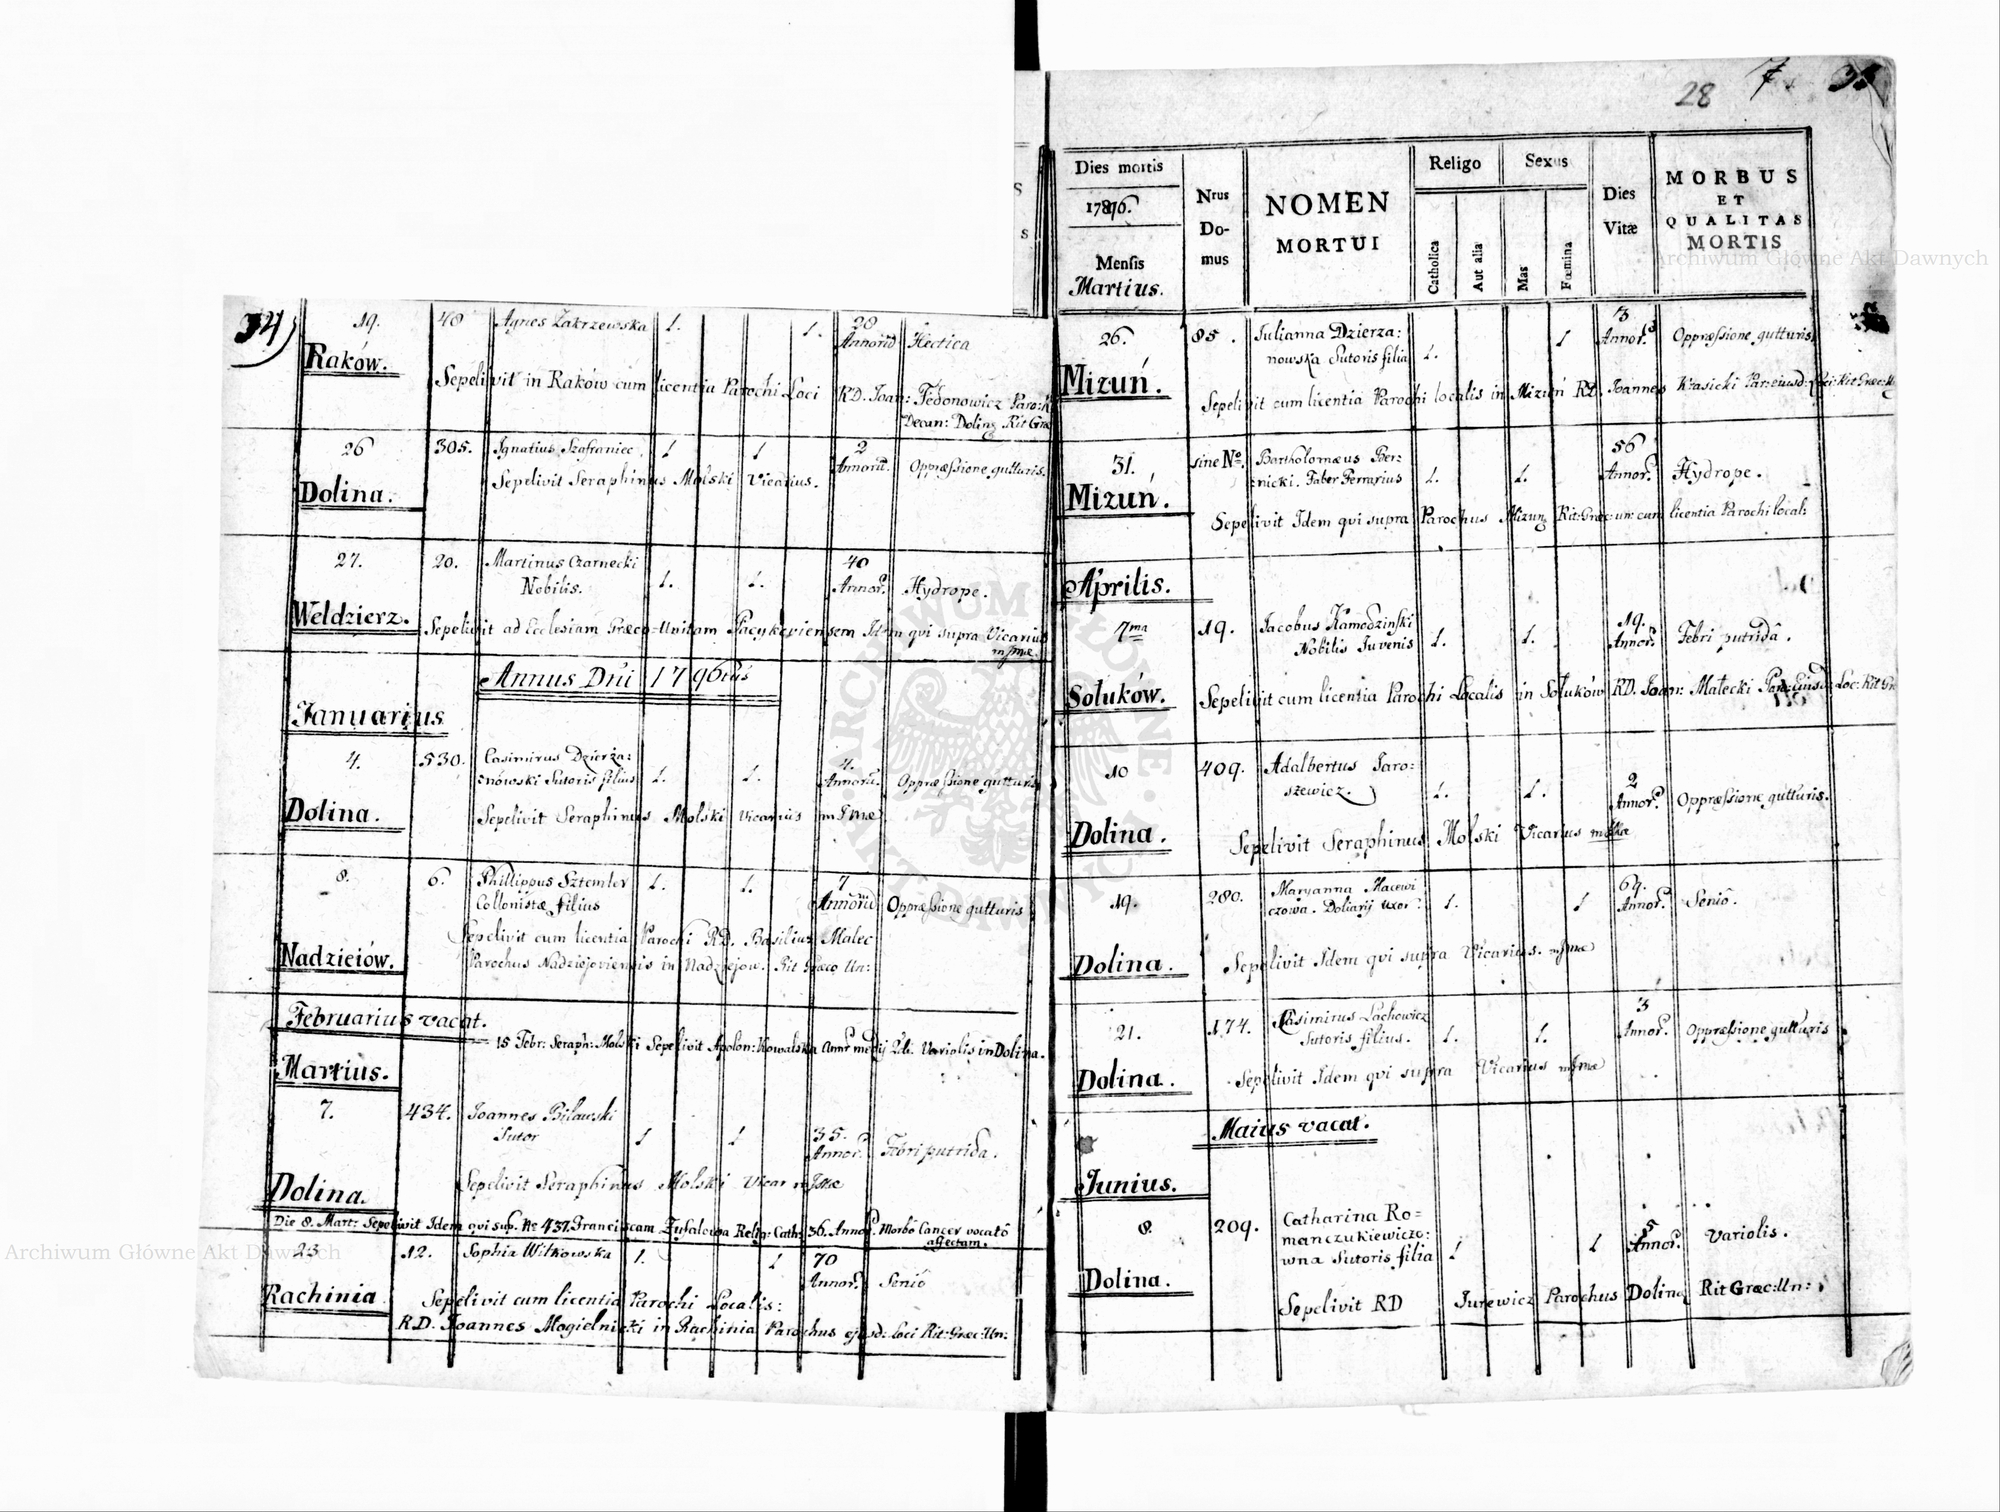 34)
19. 48 Agnes Zakrzewska 1. 1. 28
Annorū Hectica
Raków. Sepelivit in Raków cum licentia Parochi Loci RD. Joan: Fedonowicz Paro:
Decan: Dolinę Rit Græ
26 305. Ignatius Szafraniec. 1 1 2
Annorū. Oppræssione gutturis.
Dolina. Sepelivit Seraphinus Molski Vicarius.
27. 20. Martinus Czarnecki 40
Nobilis. 1. 1. Annor. Hydrope.
Weldzierz. Sepelivit ad Ecclesiam Græco-Unitam Pacykoviensem Idem qvi supra Vicarius
mpmæ.
Annus Dñi 1796tus
Januarius
4. 530. Casimirus Dzierża: 4.
nowski Sutoris filius 1. 1. Annorū. Oppræssione gutturis
Dolina. Sepelivit Seraphinus Molski Vicarius mpmæ
8. 6. Phillippus Sztemler 1. 1. 7
Collonistæ filius Annorū Oppræssione gutturis
Sepelivit cum licentia Parochi RD. Basilius Malec
Nadzieiów. Parochus Nadziejoviensis in Nadziejow. Rit Græco Un:
Februarius vacat.
15 Febr: Seraph: Molski Sepelivit Apolon: Kowalska Variolis in Dolina.
Martius.
7. 434. Joannes Bilawski
Sutor 1 1 35.
Annor. Febri putrida.
Dolina. Sepelivit Seraphinus Molski Vicar mpmæ
Die 8. Mart: Sepelivit Idem qvi sup. No 437. Franciscam Zysalowa Relig: Cath: 36. Annor. Morbô Cancer vocatô
affectam.
23 12. Sophia Witkowska 1. 1 70
Annor. Seniô
Rachinia Sepelivit cum licentia Parochi Localis:
R.D. Joannes Mogielnicki in Rachinia Parochus ejusd: Loci Rit: Græc: Un:
28 7
Dies mortis
1796.
Mensis
Martius.
Nrus
Do-
mus
NOMEN
MORTUI
Religo
Catholica
Aut alia
Sexus
Mas
Fœmina
Dies
Vitæ
MORBUS
ET
QUALITAS
MORTIS
26. 85. Julianna Dzierza: 3
nowska Sutoris filia 1. 1 Annor. Oppræssione gutturis
Mizuń. Sepelivit cum licentia Parochi localis in Mizuń RD. Joannes Krasicki Par: eiusd: Loci: Rit: Græc:
31. sine No. Bartholomæus Ber: 56
:nicki. Faber Ferrarius 1. 1. Annor. Hydrope.
Mizuń. Sepelivit Idem qvi supra Parochus Mizunę Rit: Græc: un: cum licentia Parochi local:
Aprilis.
7ma 19. Jacobus Kamodziński 19.
Nobilis Juvenis 1. 1. Annor. Febri putridâ.
Sołuków. Sepelivit cum licentia Parochi Localis in Sołuków RD. Joan: Małecki Par: Eiusd: Loc: Rit Gr
10 409. Adalbertus Jaro:
szewicz. 1. 1. 2
Annor. Oppræssione gutturis.
Dolina. Sepelivit Seraphinus Molski Vicarius mpmæ
19. 280. Maryanna Macewi 69.
czowa. Doliarij uxor. 1. 1 Annor. Seniô.
Dolina. Sepelivit Idem qvi supra Vicarius. mpmæ
21. 174. Casimirus Lachowicz 3
Sutoris filius. 1. 1. Annor. Oppræssione gutturis
Dolina. Sepelivit Idem qvi supra Vicarius mpmæ
Maius vacat.
Junius.
8. 209. Catharina Ro=
manczukiewiczo: 5
wna Sutoris filia 1 1 Annor. Variolis.
Dolina. Sepelivit RD Jurewicz Parochus Dolinę Rit Græc: Un:
Archiwum Główne Akt Dawnych
Archiwum Główne Akt Dawnych
ARCHIWUM GŁÓWNE AKT DAWNYCH